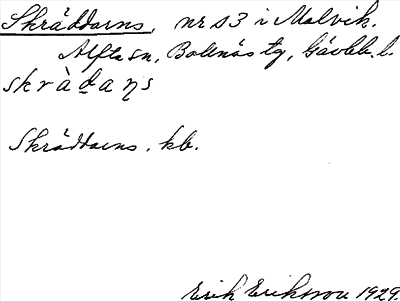 Skräddarns, nr s3 i Malvik.
Alfta sn, Bollnäs tg, Gävleb. l.
skràd̲aṇs
Skräddarns. kb.
Erik Eriksson 1929.